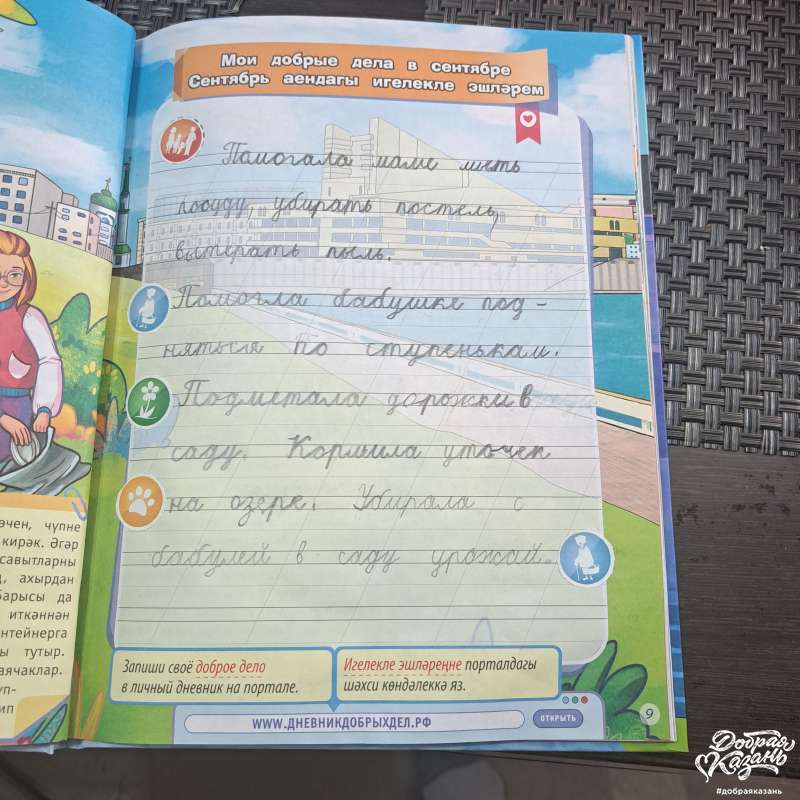 Мои добрые дела в сентябре
Сентябрь аендагы игелекле эшләрем
Помогала маме мыть
посуду, убирать постель,
вытерать пыль.
Помогла бабушке под-
няться по ступенькам.
Подметала дорожки в
саду. Кормила уточек
на озере. Убирала с
бабулей в саду урожай.
әчен, чүпне
кирәк. Әгәр
савытларны
ахырдан
Барысы да
иткәннән
нтейнерга
ы тутыр.
аячаклар.
үп-
ип
Запиши своё доброе дело
в личный дневник на портале.
Игелекле эшләреңне порталдагы
шәхси көндәлеккә яз.
WWW.ДНЕВНИКДОБРЫХДЕЛ.РФ
ОТКРЫТЬ
9
Добрая
Казань
#добраяказань